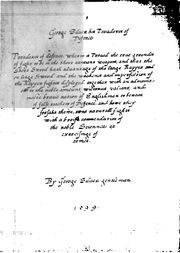 George Silver his Paradoxes of
Defence
Paradoxes of defence, wherein is Proued the true grounds
of fight to be in the short auncient weapons, and that the
Short Sword hath advantage of the longe Rapyer
and the weaknes and imperfection of
the Rapyer fight displayed. together with an admoni-
to the noble, auncient, victorious, valiant, and
most brave nation of Englishmen to beware
of false teachers of Defence, and how they
forsake theire owne naturall fights
with a briefe commendation of
the noble Science or
exercising of
armes.
By George Silver gentleman.
1599.